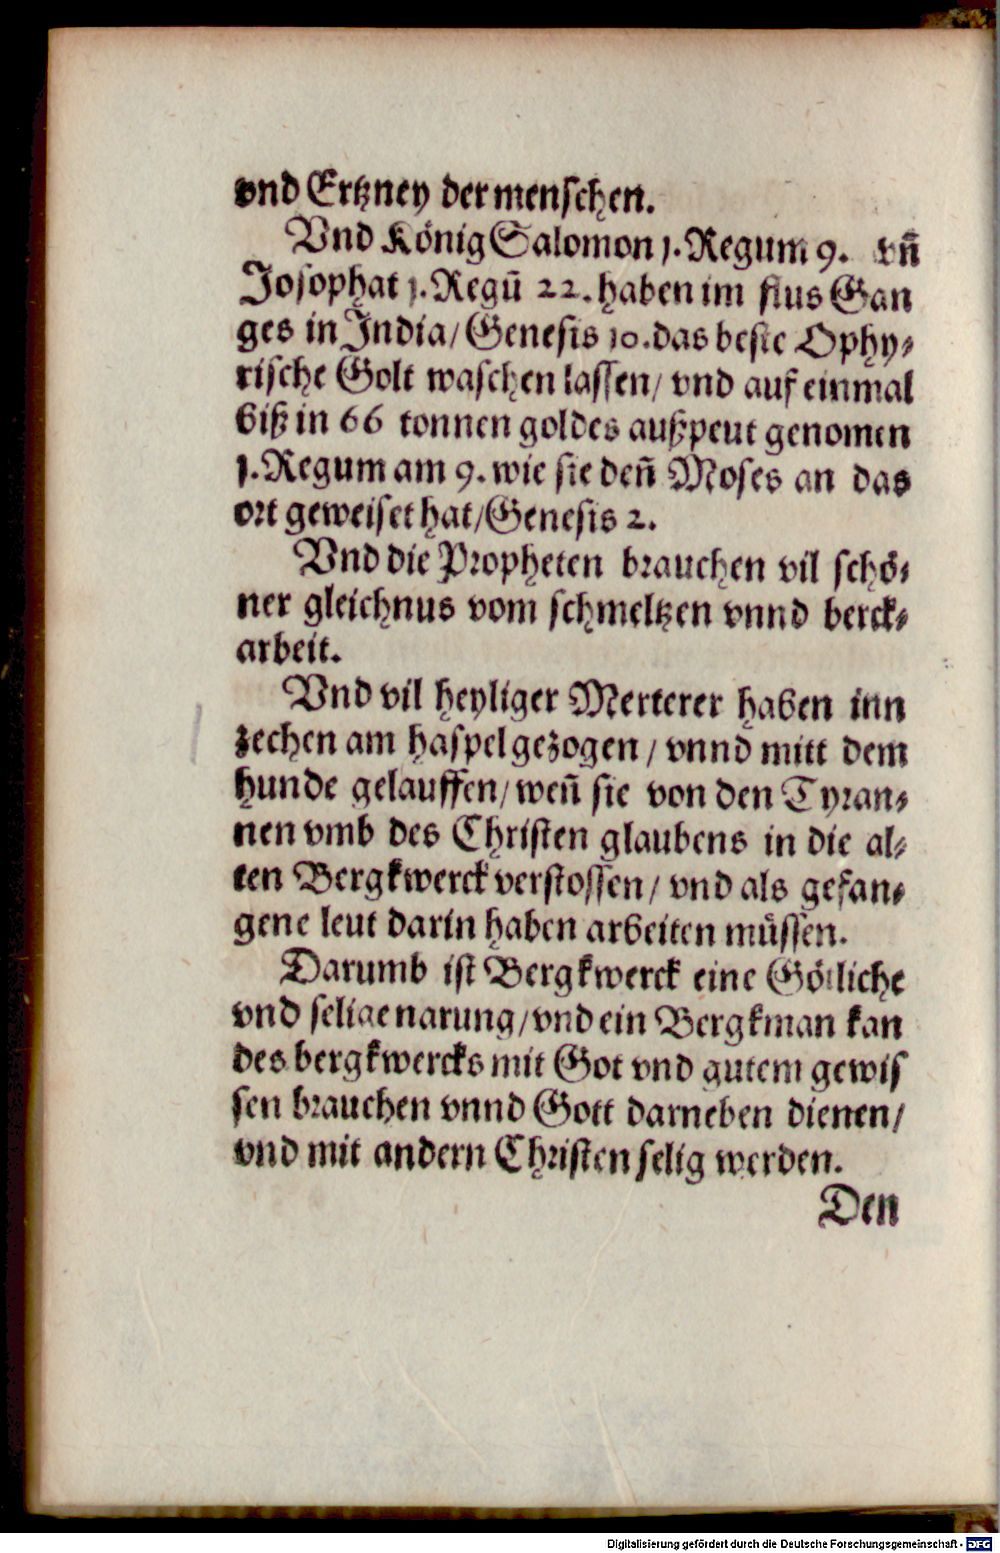 vnd Ertzney der menschen.
Vnd König Salomon 1. Regum 9. vñ
Josophat 1. Regũ 22. haben im flus Gan
ges in India/ Genesis 10. das beste Ophy⸗
rische Golt waschen lassen/ vnd auf einmal
biß in 66 tonnen goldes außpeut genomen
1. Regum am 9. wie sie deñ Moses an das
ort geweiset hat/ Genesis 2.
Vnd die Propheten brauchen vil schö⸗
ner gleichnus vom schmeltzen vnnd berck⸗
arbeit.
Vnd vil heyliger Merterer haben inn
zechen am haspel gezogen / vnnd mitt dem
hunde gelauffen/ weñ sie von den Tyran⸗
nen vmb des Christen glaubens in die al⸗
ten Bergkwerck verstossen/ vnd als gefan⸗
gene leut darin haben arbeiten müssen.
Darumb ist Bergkwerck eine Götliche
vnd selige narung/ vnd ein Bergkman kan
des bergkwercks mit Got vnd gutem gewis
sen brauchen vnnd Gott darneben dienen/
vnd mit andern Christen selig werden.
Den
Digitalisierung gefördert durch die Deutsche Forschungsgemeinschaft - DFG